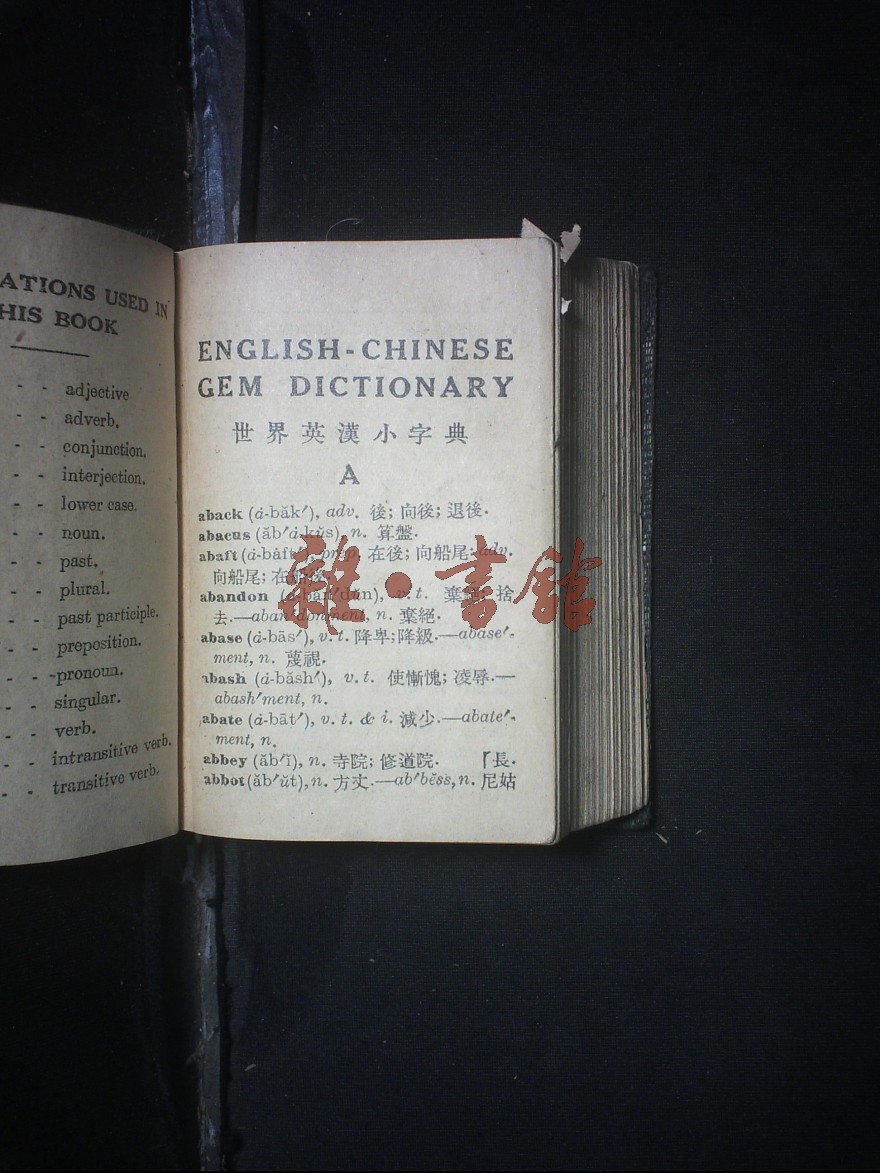 ATIONS USED IN
HIS BOOK
- - adjective
- - adverb.
- - conjunction.
- - interjection.
- - lower case.
- - noun.
- - past.
- - plural.
- - past participle.
- - preposition.
- - -pronoun.
- - singular.
- - verb.
- - intransitive verb.
- - transitive verb.
ENGLISH-CHINESE
GEM DICTIONARY
世界英漢小字典
A
aback (ȧ-băk′), adv. 後; 向後; 退後.
abacus (ăb′ȧ-kŭs), n. 算盤.
abaft (ȧ-bȧft′), prep. 在後; 向船尾; adv.
向船尾; 在船後.
abandon (ȧ-băn′dŭn), v. t. 棄絕; 捨
去.—aban′donment, n. 棄絕.
abase (ȧ-bās′), v. t. 降卑; 降級.—abase′-
ment, n. 蔑視.
abash (ȧ-băsh′), v. t. 使慚愧; 凌辱.—
abash′ment, n.
abate (ȧ-bāt′), v. t. & i. 減少.—abate′-
ment, n.
abbey (ăb′ĭ), n. 寺院; 修道院. 「長.
abbot (ăb′ŭt), n. 方丈.—ab′bĕss, n. 尼姑
雜·書館